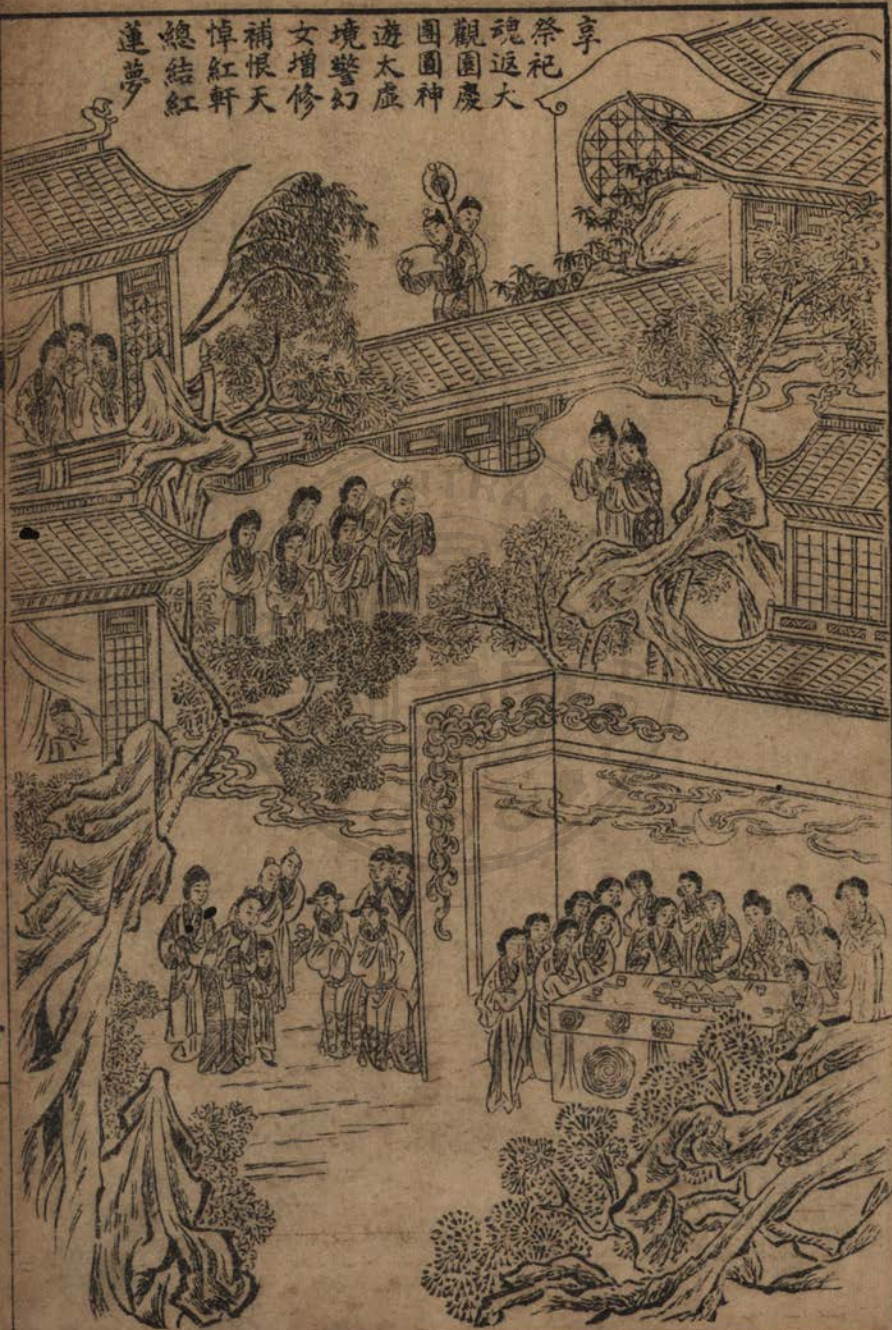 享
祭祀
魂返大
觀園慶
團圓神
遊太虛
境警幻
女增修
補恨天
悼紅軒
總結紅
蓮夢